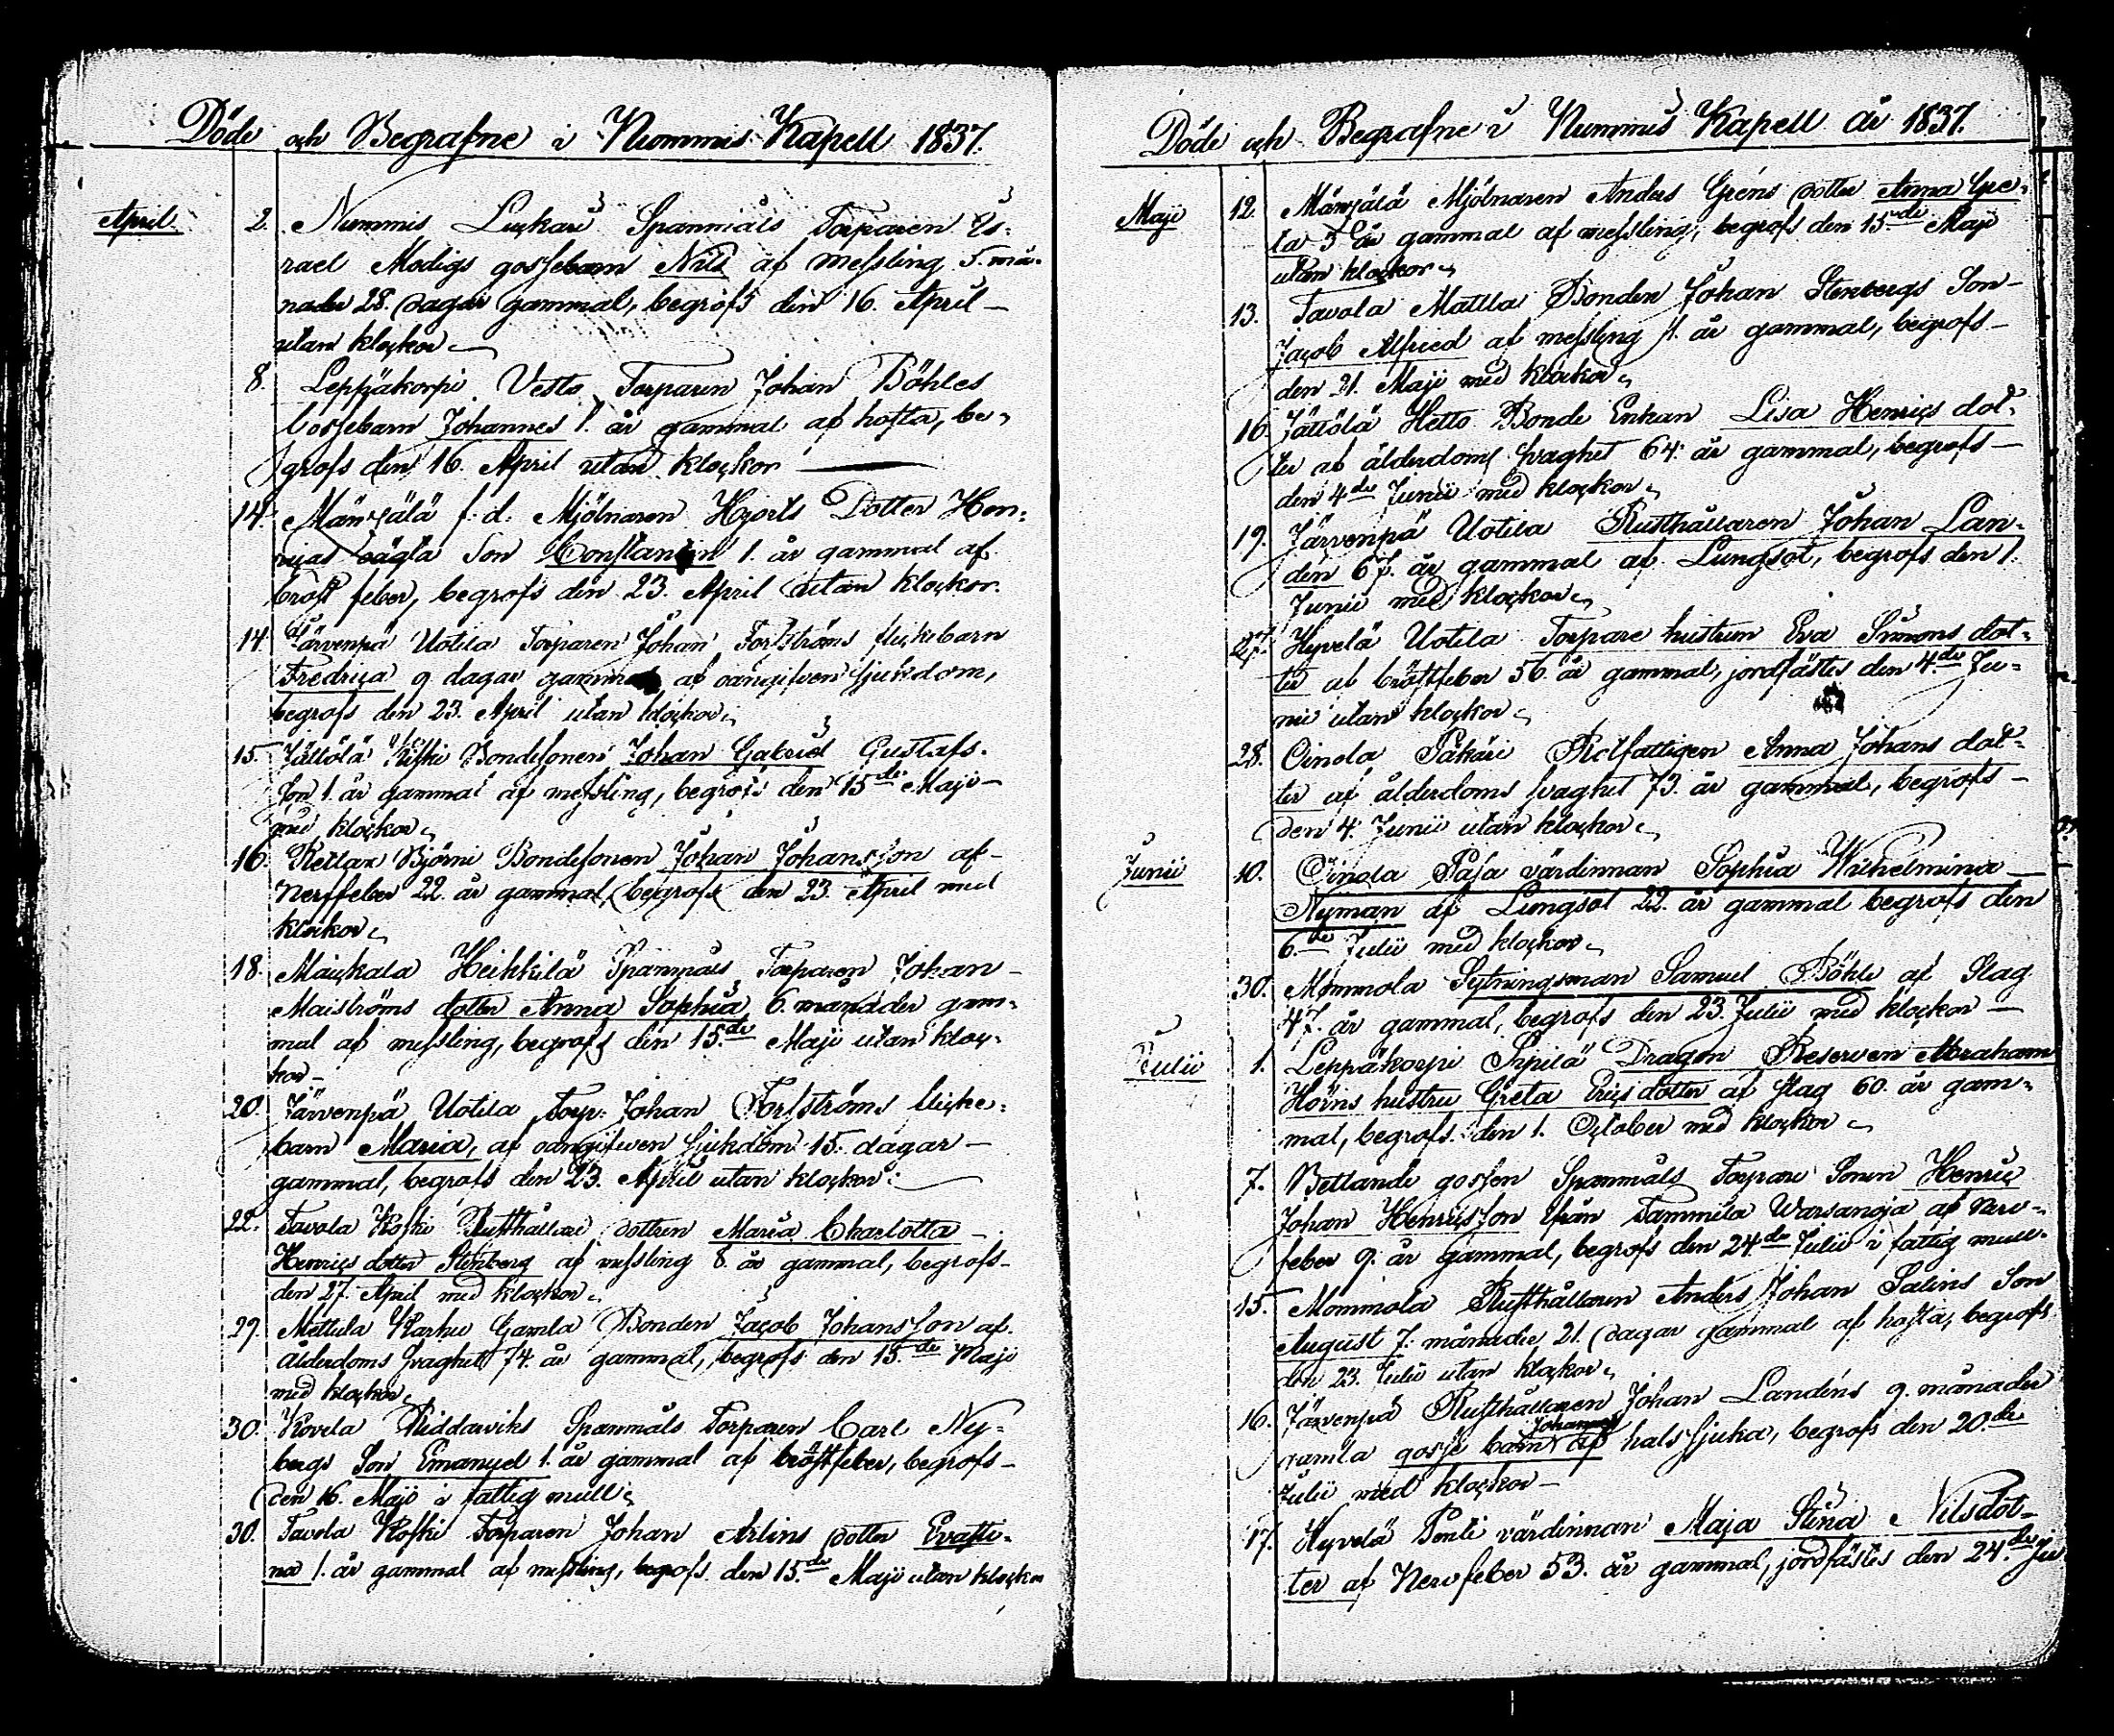 Döde och Begrafne i Nummis Kapell 1837.
April. 2. Nummis Luckari Spanmåls Torparen Is-
rael Modigs gossebarn Nils af messling 5. må-
nader 28. dagar gammal, begrofs den 16. April –
utan klockor
8. Leppäkorpi Vesto Torparen Johan Böhles
Gossebarn Johannes 1. år gammal af hosta, be-
grofs den 16. April utan klockor
14. Mäntsälä f. d. Mjölnaren Hjorts Dotter Hen-
ricas oägta Son Constantin 1. år gammal af
bröst feber, begrofs den 23. April utan klockor.
14. Järvenpä Uotila Torparen Johan Forsströms flickebarn
Fredrica 9 dagar gammal af oangifven sjukdom,
begrofs den 23. April utan klockor
15. Jättölä Kiski Bondesonen Johan Gabriel Gustafs-
son 1. år gammal af messling, begrofs den 15de Maji –
med klockor
16. Retlax Björni Bondesonen Johan Johansson af –
Nerffeber 22. år gammal, begrofs den 23. April med
klockor
18. Maickala Heikkilä Spanmåls Torparen Johan –
Maiströms dotter Anna Sophia 6. månader gam-
mal af messling, begrofs den 15de Maji utan kloc-
kor –
20. Järvenpä Uotila Torp: Johan Forsströms flicke-
barn Maria, af oangifven sjukdom 15. dagar –
gammal, begrofs den 23. April utan klockor.
22. Tavola Koski Rusthållare dottren Maria Charlotta –
Henrics dotter Stenberg af messling 8. år gammal, begrofs –
den 27. April med klockor
29. Mettula Karhu Gamla Bonden Jacob Johansson af
ålderdoms svaghet 74. år gammal, begrofs den 15.de Maji
med klockor
30. Kovela Riddarviks Spanmåls Torparen Carl Ny-
bergs Son Emanuel 1. år gammal af bröstfeber, begrofs –
den 16. Maji i fattig mull
30. Tavola Koski Torparen Johan Arlins dotter Evasti-
na 1. år gammal af messling, begrofs den 15.de Maji utan klockor
Döde och Begrafne i Nummis Kapell år 1837.
Maji 12. Mäntsälä Mjölnaren Anders Gréns dotter Anna Gre-
ta 5 år gammal af messling, begrofs den 15de Maji
utan klockor
13. Tavola Mattla Bonden Johan Stenbergs Son –
Jacob Alfried af messling 1. år gammal, begrofs –
den 21. Maji med klockor
16. Jättölä Hetto Bonde Enkan Lisa Henrics dot-
ter af ålderdoms svaghet 64. år gammal, begrofs –
den 4de Junii med klockor
19. Järvenpä Uotila Rusthållaren Johan Lan-
den 67. år gammal af Lungsot, begrofs den 1.
Junii med klockor
27. Hyvelä Uotila Torpare hustrun Eva Simons dot-
ter af bröstfeber 56. år gammal, jordfästes den 4.de Ju-
nii utan klockor
28. Oinola Päkäri Rotfattigen Anna Johans dot-
ter af ålderdoms svaghet 73. år gammal, begrofs –
den 4. Junii utan klockor
Junii 10. Oinola Paja värdinnan Sophia Wilhelmina –
Nyman af Lungsot 22. år gammal begrofs den
6.de Julii med klockor
30. Mommola Sytningsman Samuel Böhle af Slag
47. år gammal, begrofs den 23. Julii med klockor –
Julii 1. Leppäkorpi Sipilä Dragon Reserven Abraham
Hörns hustru Greta Erics dotter af slag 60. år gam-
mal, begrofs den 1. October med klockor
7. Betlande gossen Spanmåls Torpare Sonen Henric
Johan Henricsson från Tammila Warsanoja af Nerv-
feber 9. år gammal, begrofs den 24de Julii i fattig mull.
15. Mommola Rusthållaren Anders Johan Salins Son
August 7. månader 21. dagar gammal af hosta, begrofs
den 23. Julii utan klockor
16. Järvenpä Rusthållaren Johan Landéns 9. månader
Johannes
gamla gosse barn af halssjuka, begrofs den 20.de
Julii med klockor –
17. Hyvelä Pentti värdinnan Maja Stina Nilsdot-
ter af Nervfeber 53. år gammal, jordfästes den 24.de Ju